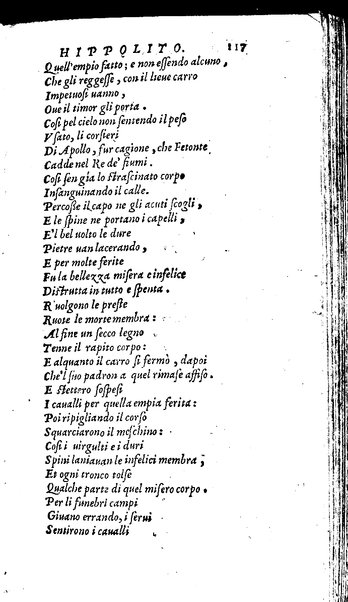 HIPPOLITO. 117
Quell'empio fatto; e non essendo alcuno,
Che gli reggesse, con il lieue carro
Impetuosi uanno,
Oue il timor gli porta.
Cosi pel cielo non sentendo il peso
Vsato, li corsieri
Di Apollo, fur cagione, che Fetonte
Cadde nel Re de' fiumi.
Cosi sen gia lo strascinato corpo
Insanguinando il calle.
Percosse il capo ne gli acuti scogli,
E le spine ne portano i capelli,
E'l bel uolto le dure
Pietre uan lacerando,
E per molte ferite
Fu la bellezza misera e infelice
Distrutta in tutto e spenta.
Riuolgono le preste
Ruote le morte membra:
Al fine un secco legno
Tenne il rapito corpo:
E alquanto il carro si fermò, dapoi
Che'l suo padron a quel rimase affiso.
E stettero sospesi
I caualli per quella empia ferita:
Poi ripigliando il corso
Squarciarono il meschino:
Cosi i uirgulti e i duri
Spini laniauan le infelici membra;
Et ogni tronco tolse
Qualche parte di quel misero corpo.
Per li funebri campi
Giuano errando, i serui
Sentirono i caualli